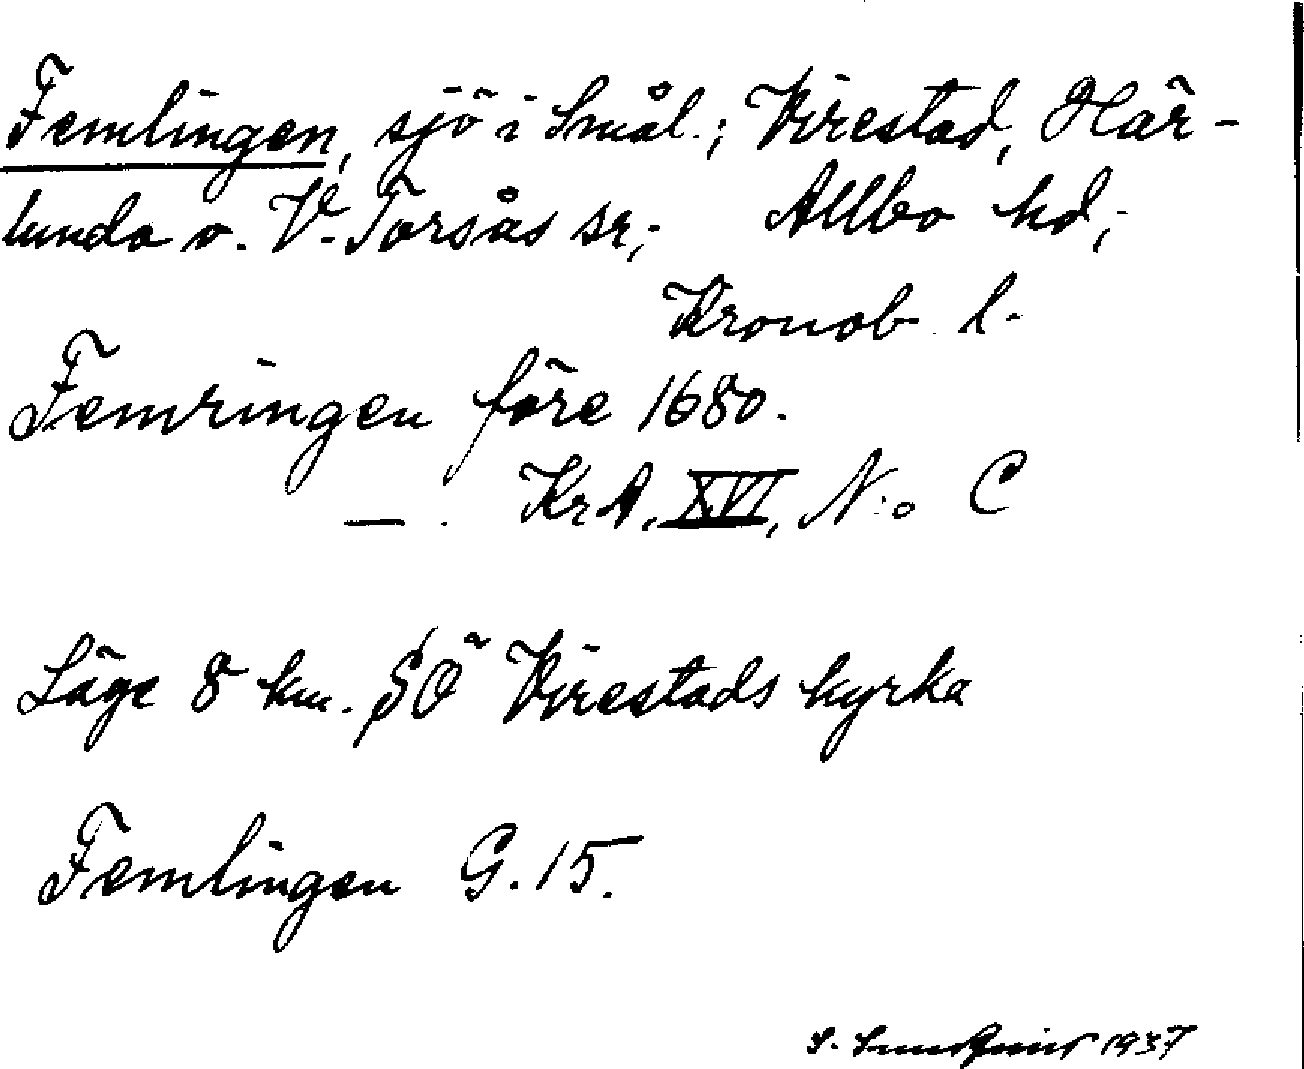 Femlingen, sjö i Smål.; Virestad, Här-
lunda o. V. Torsås sr,; Allbo hd,;
Kronob. l.
Femringen före 1680.
— . KrA, XVI, N:o C
Läge 8 km. SÖ Virestads kyrka
Femlingen G. 15.
S. 1937